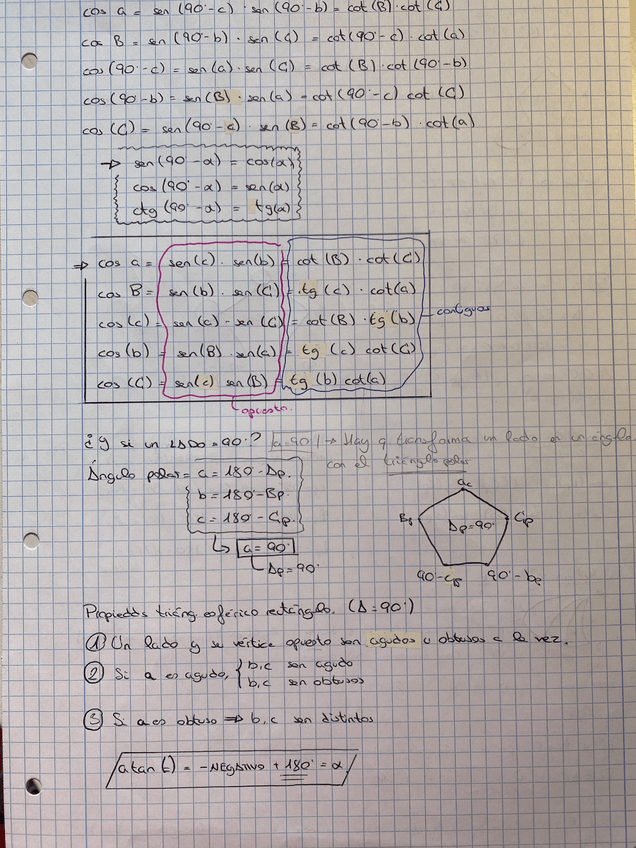 cos a = sen (90º-c) · sen (90º-b) = cot (B) · cot (C)
cos B = sen (90º-b) · sen (C) = cot (90º-c) · cot (a)
cos (90º-c) = sen (a) · sen (C) = cot (B) · cot (90º-b)
cos (90-b) = sen (B) · sen (a) = cot (90º-c) cot (C)
cos (C) = sen (90º-c) · sen (B) = cot (90º-b) · cot (a)
→ sen (90º-α) = cos (α)
cos (90º-α) = sen (α)
ctg (90º-α) = tg (α)
⇒ cos a = sen (c) · sen (b) = cot (B) · cot (C)
cos B = sen (b) · sen (C) = tg (c) · cot (a)
cos (c) = sen (a) · sen (C) = cot (B) · tg (b)
contiguos
cos (b) = sen (B) · sen (a) = tg (c) cot (C)
cos (C) = sen (c) sen (B) = tg (b) cot (a)
opuestos
¿Y si un LADO = 90º? a=90º → Hay q transformar un lado en un ángulo
con el triángulo polar
Ángulo polar = a = 180º - Ap.
b = 180º - Bp.
c = 180º - Cp.
↳ a = 90º
Ap = 90º
ac
Bp
Cp
Ap = 90º
90 - cp
90º - bp
Propiedds triáng esférico rectángulo. (A = 90º)
① Un lado y su vértice opuesto son agudos u obtusos a la vez.
② Si a es agudo, { b, c son agudo
b, c son obtusos
③ Si a es obtuso ⇒ b, c son distintos
atan (-) = -NEGATIVO + 180º = α